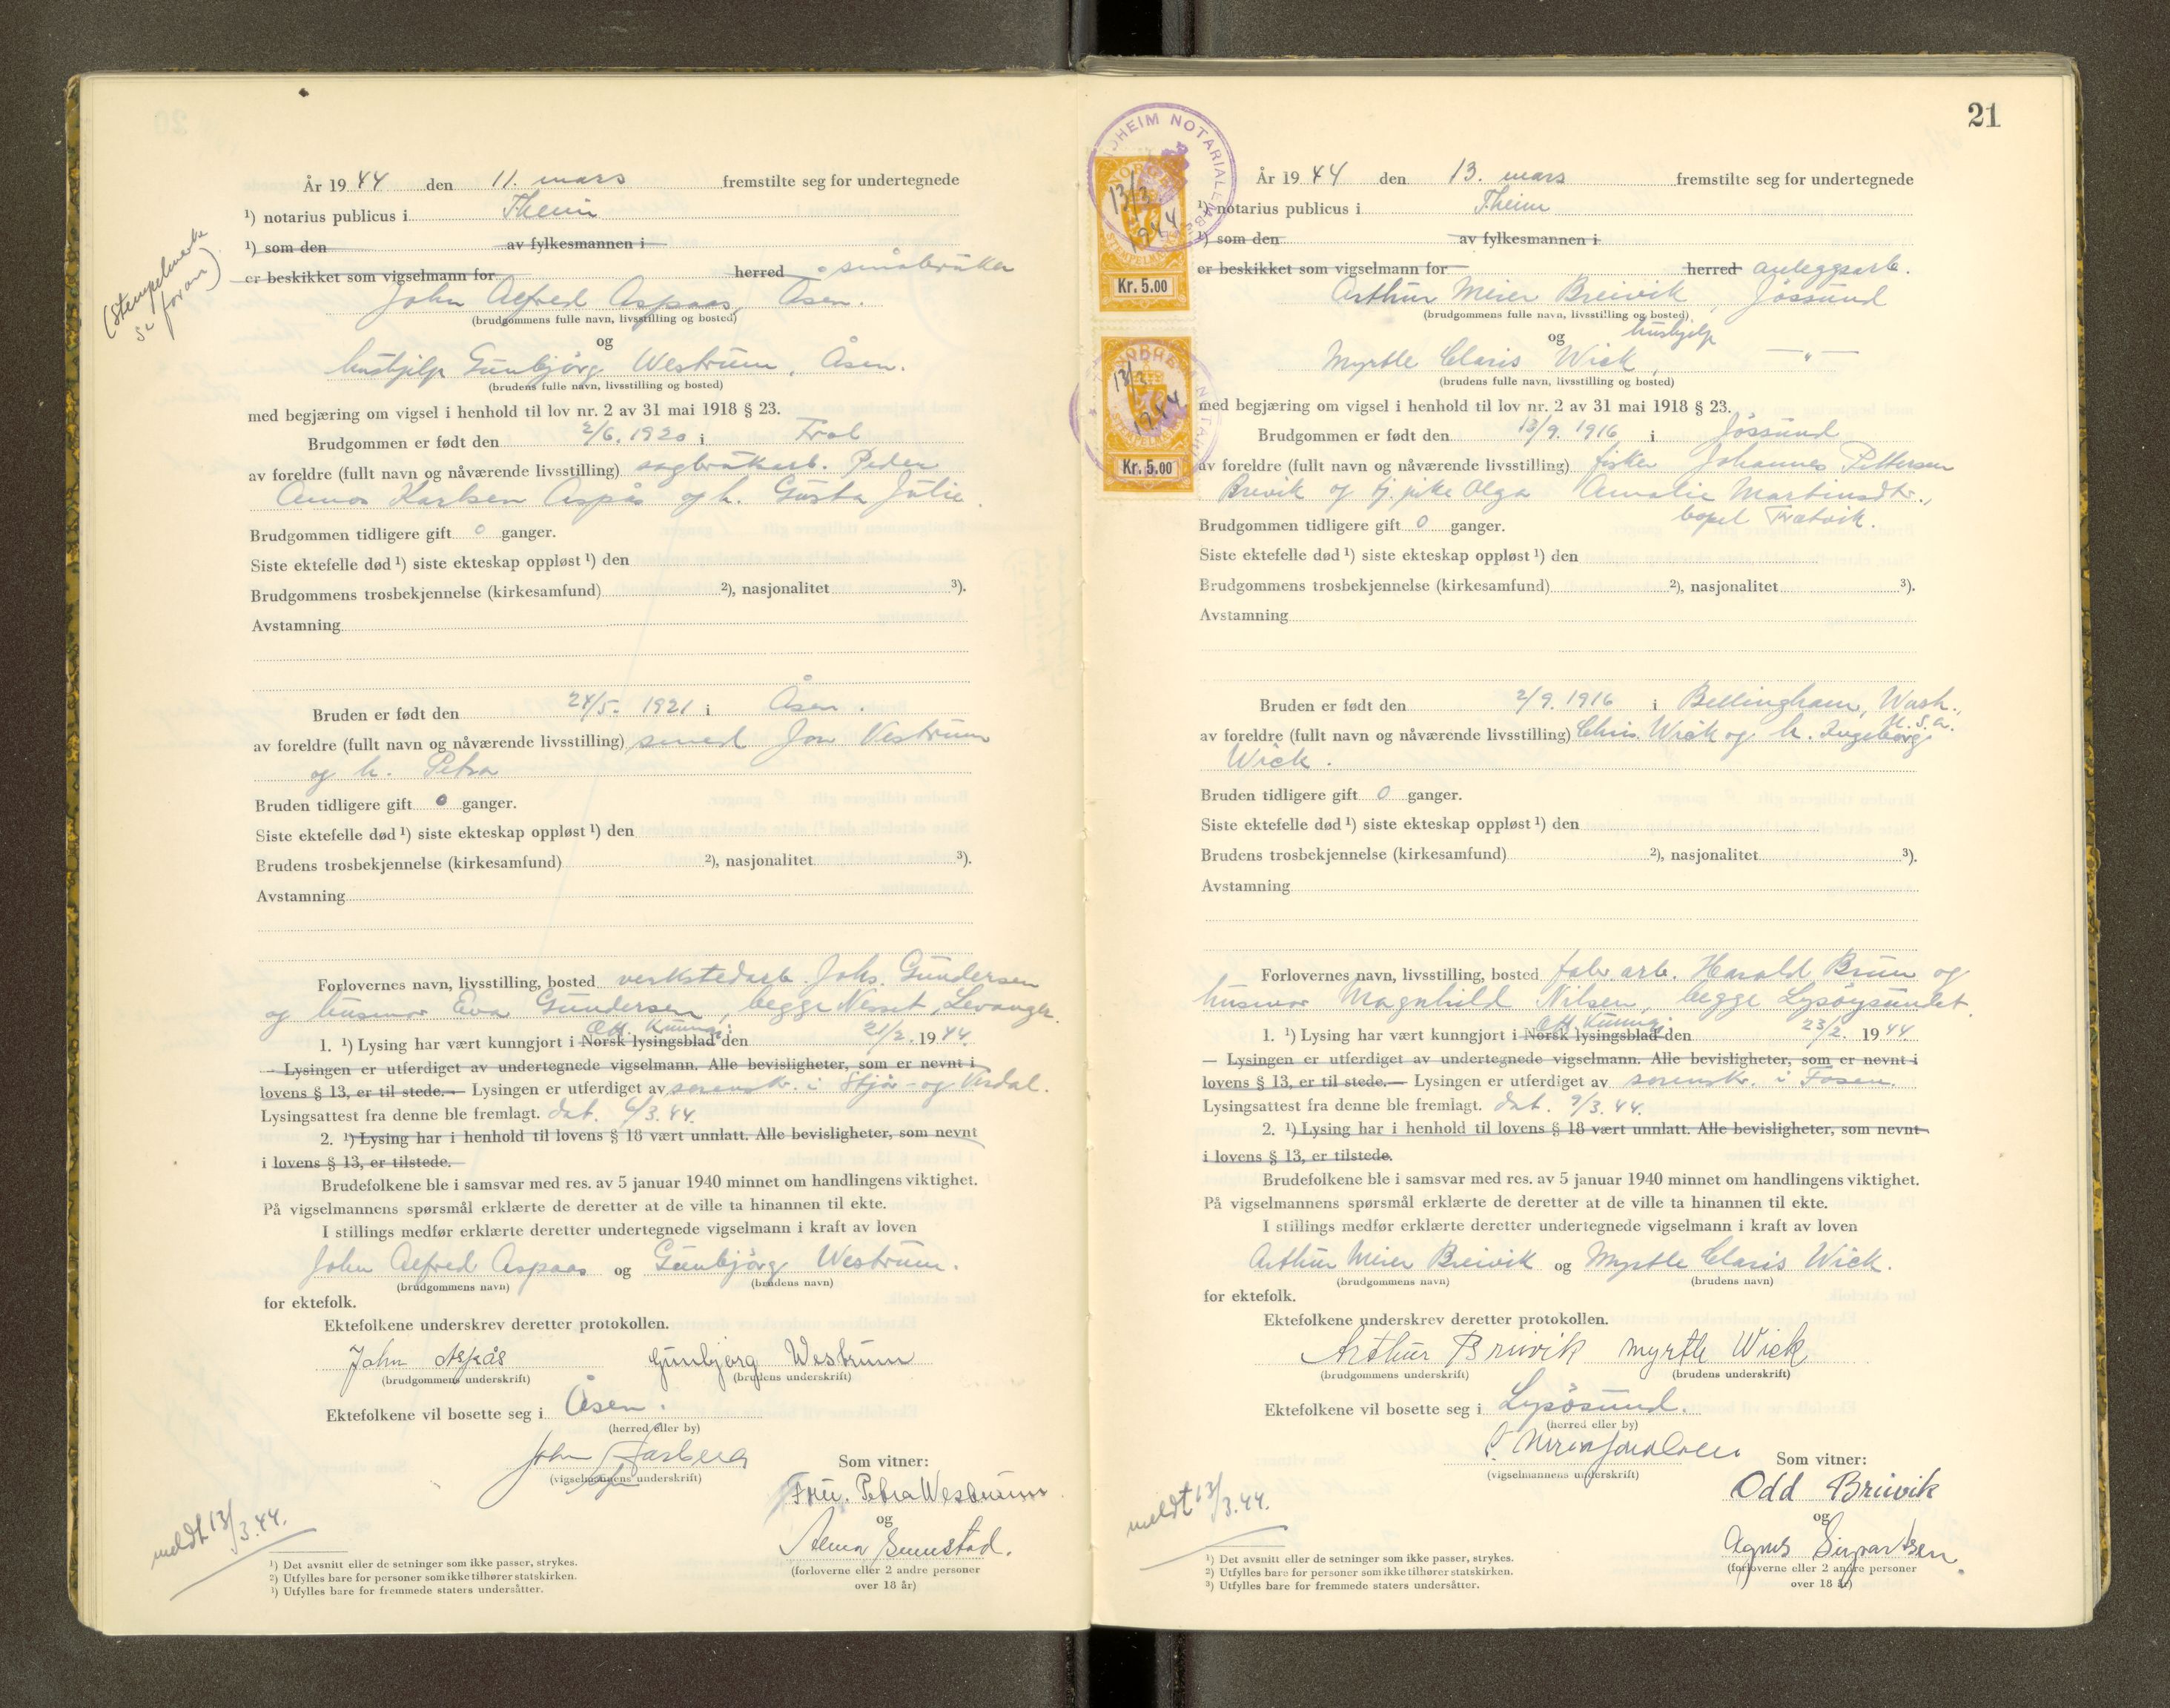 (Stempelmerke
se foran)
År 1944 den 11. mars fremstilte seg for undertegnede
¹) notarius publicus i T.heim
¹) som den av fylkesmannen i
er beskikket som vigselmann for herred småbruker
John Alfred Aspaas, Åsen.
(brudgommens fulle navn, livsstilling og bosted)
og
hushjelp Gunbjørg Westrum, Åsen.
(brudens fulle navn, livsstilling og bosted)
med begjæring om vigsel i henhold til lov nr. 2 av 31 mai 1918 § 23.
Brudgommen er født den 2/6. 1920 i Frol
av foreldre (fullt navn og nåværende livsstilling) sagbrukarb. Peder
Amos Karlsen Aspås og h. Gusta Julie.
Brudgommen tidligere gift 0 ganger.
Siste ektefelle død ¹) siste ekteskap oppløst ¹) den
Brudgommens trosbekjennelse (kirkesamfund) ²), nasjonalitet ³).
Avstamning
Bruden er født den 24/5. 1921 i Åsen.
av foreldre (fullt navn og nåværende livsstilling) smed Jon Vestrum
og h. Petra
Bruden tidligere gift 0 ganger.
Siste ektefelle død ¹) siste ekteskap oppløst ¹) den
Brudens trosbekjennelse (kirkesamfund) ²), nasjonalitet ³).
Avstamning
Forlovernes navn, livsstilling, bosted verkstedarb. Johs. Gundersen
og husmor Eva Gundersen, begge Nesset, Levanger.
Off. Kunngj.
1. ¹) Lysing har vært kunngjort i Norsk lysingsblad den 21/2. 1944.
— Lysingen er utferdiget av undertegnede vigselmann. Alle bevisligheter, som er nevnt i
lovens § 13, er til stede. — Lysingen er utferdiget av sorenskr. i Stjør- og Verdal.
Lysingsattest fra denne ble fremlagt. dat. 6/3. 44.
2. ¹) Lysing har i henhold til lovens § 18 vært unnlatt. Alle bevisligheter, som nevnt
i lovens § 13, er tilstede.
Brudefolkene ble i samsvar med res. av 5 januar 1940 minnet om handlingens viktighet.
På vigselmannens spørsmål erklærte de deretter at de ville ta hinannen til ekte.
I stillings medfør erklærte deretter undertegnede vigselmann i kraft av loven
John Alfred Aspaas og Gunbjørg Westrum.
(brudgommens navn) (brudens navn)
for ektefolk.
Ektefolkene underskrev deretter protokollen.
John Aspås Gunbjørg Westrum
(brudgommens underskrift) (brudens underskrift)
Ektefolkene vil bosette seg i Åsen.
(herred eller by)
John Aarberg
(vigselmannens underskrift)
Som vitner:
Fru. Petra Westrum
og
Alma Sunnstad.
(forloverne eller 2 andre personer
over 18 år)
meldt 13/3.44.
¹) Det avsnitt eller de setninger som ikke passer, strykes.
²) Utfylles bare for personer som ikke tilhører statskirken.
³) Utfylles bare for fremmede staters undersåtter.
21
NOTARIALEMB
NORGE
13/3
1944
STEMPELMERKE
Kr. 5.00
NORGE
13/3
1944
STEMPELMERKE
Kr. 5.00
År 1944 den 13. mars fremstilte seg for undertegnede
¹) notarius publicus i T.heim
¹) som den av fylkesmannen i
er beskikket som vigselmann for herred anleggsarb.
Arthur Meier Breivik, Jøssund
(brudgommens fulle navn, livsstilling og bosted)
og hushjelp
Myrtle Claris Wick, — " —
(brudens fulle navn, livsstilling og bosted)
med begjæring om vigsel i henhold til lov nr. 2 av 31 mai 1918 § 23.
Brudgommen er født den 13/9. 1916 i Jøssund
av foreldre (fullt navn og nåværende livsstilling) fisker Johannes Pettersen
Brevik og tj.pike Olga Amalie Martinsdtr.,
bopel Tratvik.
Brudgommen tidligere gift 0 ganger.
Siste ektefelle død ¹) siste ekteskap oppløst ¹) den
Brudgommens trosbekjennelse (kirkesamfund) ²), nasjonalitet ³).
Avstamning
Bruden er født den 2/9. 1916 i Bellingham, Wash.,
U.S.A.
av foreldre (fullt navn og nåværende livsstilling) Chris. Wick og h. Ingeborg
Wick.
Bruden tidligere gift 0 ganger.
Siste ektefelle død ¹) siste ekteskap oppløst ¹) den
Brudens trosbekjennelse (kirkesamfund) ²), nasjonalitet ³).
Avstamning
Forlovernes navn, livsstilling, bosted fabr.arb. Harald Bruun og
husmor Magnhild Nilsen, begge Lysøysundet.
Off. Kunngj.
1. ¹) Lysing har vært kunngjort i Norsk lysingsblad den 23/2. 1944
— Lysingen er utferdiget av undertegnede vigselmann. Alle bevisligheter, som er nevnt i
lovens § 13, er til stede. — Lysingen er utferdiget av sorenskr. i Fosen.
Lysingsattest fra denne ble fremlagt. dat. 9/3. 44.
2. ¹) Lysing har i henhold til lovens § 18 vært unnlatt. Alle bevisligheter, som nevnt
i lovens § 13, er tilstede.
Brudefolkene ble i samsvar med res. av 5 januar 1940 minnet om handlingens viktighet.
På vigselmannens spørsmål erklærte de deretter at de ville ta hinannen til ekte.
I stillings medfør erklærte deretter undertegnede vigselmann i kraft av loven
Arthur Meier Breivik og Myrtle Claris Wick.
(brudgommens navn) (brudens navn)
for ektefolk.
Ektefolkene underskrev deretter protokollen.
Arthur Breivik Myrtle Wick
(brudgommens underskrift) (brudens underskrift)
Ektefolkene vil bosette seg i Lysøsund.
(herred eller by)
(vigselmannens underskrift)
Som vitner:
Odd Breivik
og
Agnes Sivertsen.
(forloverne eller 2 andre personer
over 18 år)
meldt 13/3.44.
¹) Det avsnitt eller de setninger som ikke passer, strykes.
²) Utfylles bare for personer som ikke tilhører statskirken.
³) Utfylles bare for fremmede staters undersåtter.